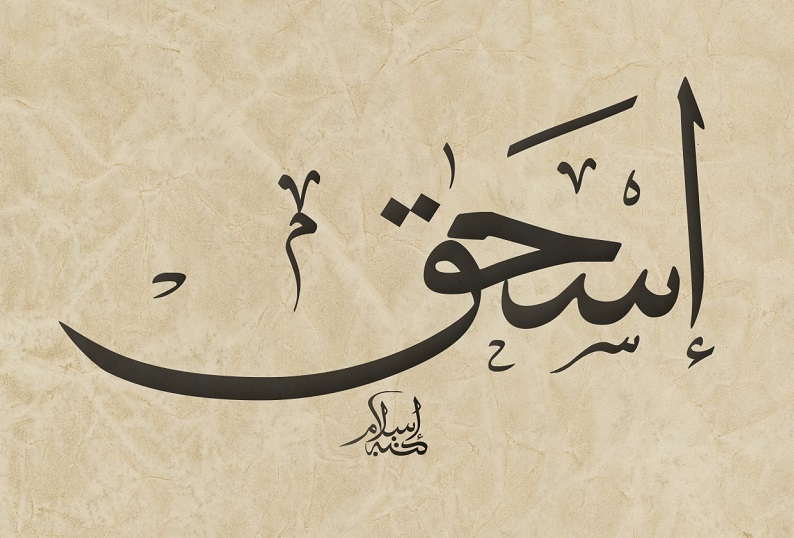 إسحٰق
كتبه إسلام